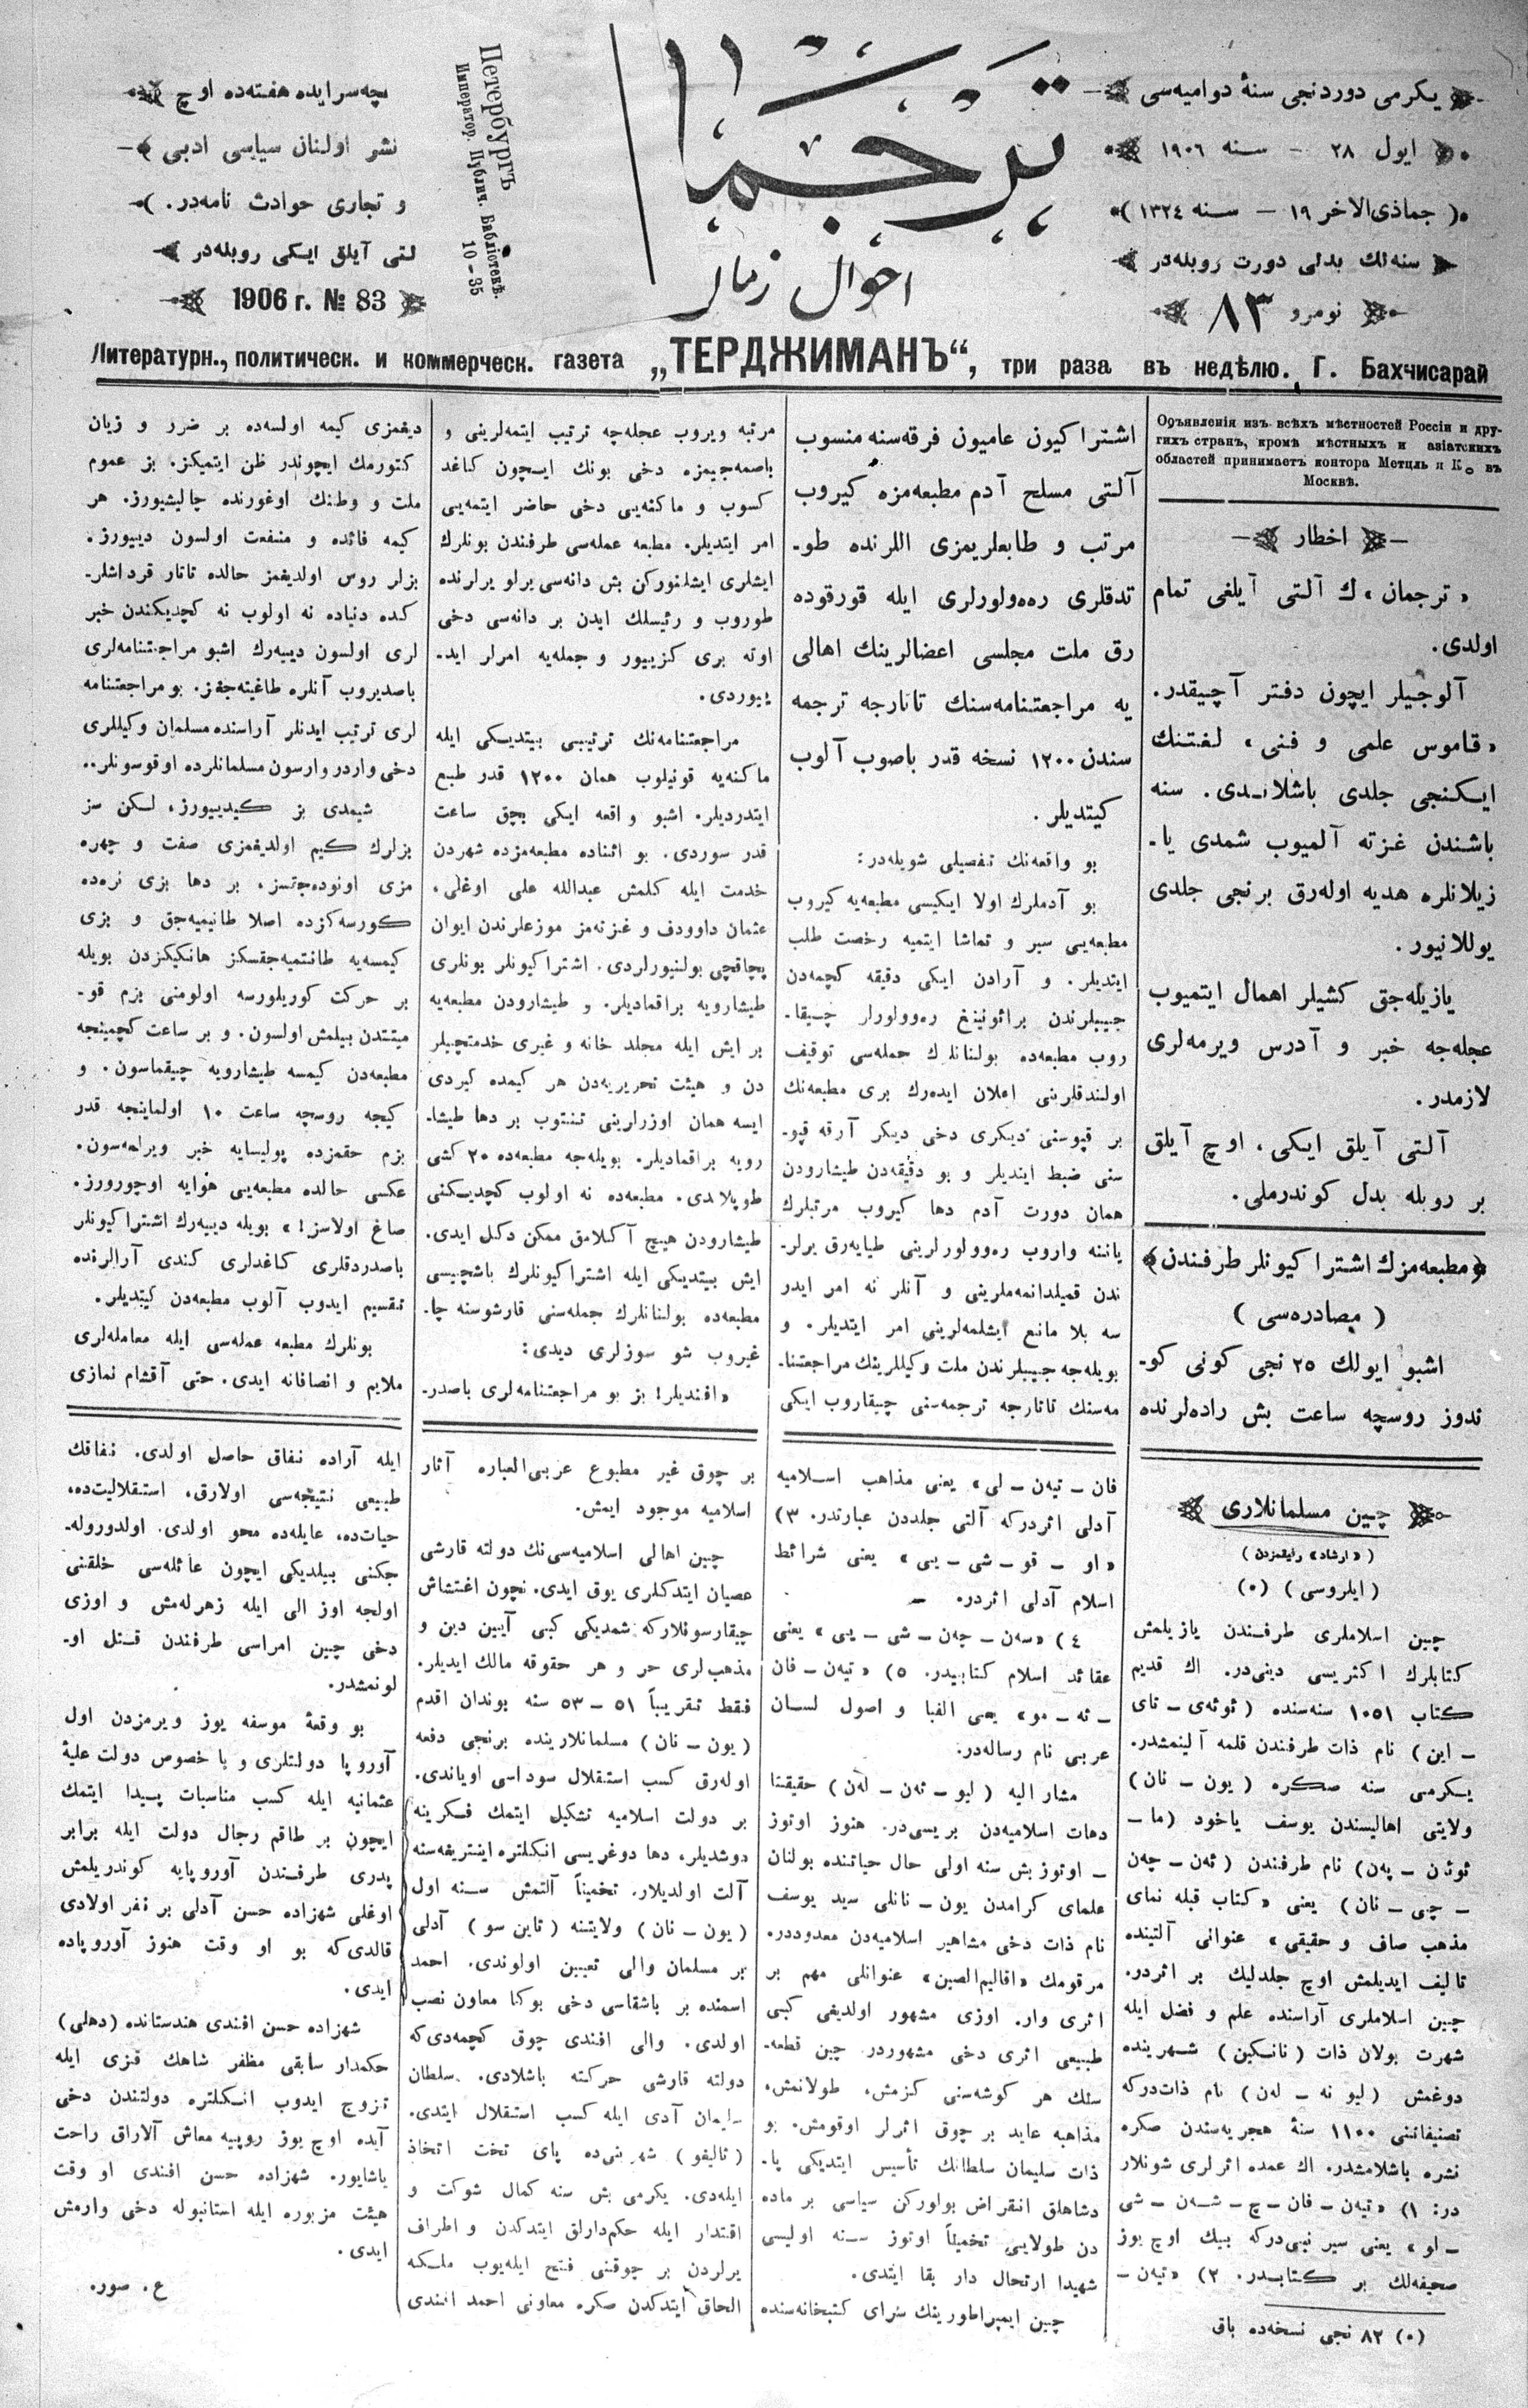 يكرمى دوردنجى سنهٔ دواميه‌سى
ايول ٢٨ – سنه ١٩٠٦
(جماذى‌الاخر ١٩ – سنه ١٣٢٤)
سنه‌لك بدلى دورت روبله‌در
نومرو ٨٣
ترجمان
احوال زمان
Петербургъ
Император. Публич. Библіотекѣ.
10-35
هفته‌ده اوچ
نشر اولنان سياسى ادبى
و تجارى حوادث نامه‌در.
آيلق ايكى روبله‌در
1906 г. № 83
Литературн., политическ. и коммерческ. газета „ТЕРДЖИМАНЪ“, три раза въ недѣлю. Г. Бахчисарай
Объявленія изъ всѣхъ мѣстностей Россіи и дру-
гихъ странъ, кромѣ мѣстныхъ и азіатскихъ
областей принимаетъ контора Метцль и К⁰ въ
Москвѣ.
اخطار
«ترجمان» ك آلتى آيلغى تمام
اولدى.
آلوجيلر ايچون دفتر آچيقدر.
«قاموس علمى و فنى» لغتنك
ايكنجى جلدى باشلاندى. سنه
باشندن غزته آلميوب شمدى يا-
زيلانلره هديه اوله‌رق برنجى جلدى
يوللانيور.
يازيله‌جق كشيلر اهمال ايتميوب
عجله‌جه خبر و آدرس ويرمه‌لرى
لازمدر.
آلتى آيلق ايكى، اوچ آيلق
بر روبله بدل كوندرملى.
﴿مطبعه‌مزك اشتراكيونلر طرفندن﴾
(مصادره‌سى)
اشبو ايولك ٢٥ نجى كونى كو-
ندوز روسچه ساعت بش راده‌لرنده
اشتراكيون عاميون فرقه‌سنه منسوب
آلتى مسلح آدم مطبعه‌مزه كيروب
مرتب و طابعلريمزى اللرنده طو-
تدقلرى ره‌وولورلرى ايله قورقوده
رق ملت مجلسى اعضالرينك اهالى
يه مراجعتنامه‌سنك تاتارجه ترجمه
سندن ١٢٠٠ نسخه قدر باصوب آلوب
كيتديلر.
بو واقعه‌نك تفصيلى شويله‌در:
بو آدملرك اولا ايكيسى مطبعه‌يه كيروب
مطبعه‌يى سير و تماشا ايتميه رخصت طلب
ايتديلر. و آرادن ايكى دقيقه كچمه‌دن
جيبلرندن براؤنينغ ره‌وولورلر چيقا-
روب مطبعه‌ده بولنانلرك جمله‌سى توقيف
اولندقلرينى اعلان ايده‌رك برى مطبعه‌نك
بر قپوسنى ديكرى دخى ديكر آرقه قپو-
سنى ضبط ايتديلر و بو دقيقه‌دن طيشارودن
همان دورت آدم دها كيروب مرتبلرك
ياننه واروب ره‌وولورلرينى طيايه‌رق برلر-
ندن قميلدانمه‌ملرينى و آنلر نه امر ايدر
سه بلا مانع ايشلمه‌لرينى امر ايتديلر. و
بويله‌جه جيبلرندن ملت وكيللرينك مراجعتنا-
مه‌سنك تاتارجه ترجمه‌سنى چيقاروب ايكى
مرتبه ويروب عجله‌جه ترتيب ايتمه‌لرينى و
باصمه‌جيمزه دخى بونك ايچون كاغد
كسوب و ماكنه‌يى دخى حاضر ايتمه‌يى
امر ايتديلر. مطبعه عمله‌سى طرفندن بونلرك
ايشلرى ايشلنوركن بش دانه‌سى برلو يرلرنده
طوروب و رئيسلك ايدن بر دانه‌سى دخى
اوته برى كزييور و جمله‌يه امرلر ايد-
ييوردى.
مراجعتنامه‌نك ترتيبى بيتديكى ايله
ماكنه‌يه قونيلوب همان ١٢٠٠ قدر طبع
ايتدرديلر. اشبو واقعه ايكى بچق ساعت
قدر سوردى. بو اثناده مطبعه‌مزده شهردن
خدمت ايله كلمش عبدالله على اوغلى،
عثمان داوودف و غزته‌مز موزعلرندن ايوان
پچاقچى بولنيورلردى. اشتراكيونلر بونلرى
طيشارويه براقماديلر. و طيشارودن مطبعه‌يه
بر ايش ايله مجلد خانه و غيرى خدمتچيلر
دن و هيئت تحريريه‌دن هر كيمده كيردى
ايسه همان اوزرلرينى تنتوب بر دها طيشا-
رويه براقماديلر. بويله‌جه مطبعه‌ده ٢٠ كشى
طوپلاندى. مطبعه‌ده نه اولوب كچديكنى
طيشارودن هيچ آكلامق ممكن دكل ايدى.
ايش بيتديكى ايله اشتراكيونلرك باشچيسى
مطبعه‌ده بولنانلرك جمله‌سنى قارشوسنه چا-
غيروب شو سوزلرى ديدى:
«افنديلر! بز بو مراجعتنامه‌لرى باصدر-
ديغمزى كيمه اولسه‌ده بر ضرر و زيان
كتورمك ايچوندر ظن ايتميكز. بز عموم
ملت و وطنك اوغورنده چاليشيورز. هر
كيمه فائده و منفعت اولسون ديييورز.
بزلر روس اولديغمز حالده تاتار قرداشلر-
كده دنياده نه اولوب نه كچديكندن خبر
لرى اولسون دييه‌رك اشبو مراجعتنامه‌لرى
باصديروب آنلره طاغيته‌جغز. بو مراجعتنامه
لرى ترتيب ايدنلر آراسنده مسلمان وكيللرى
دخى واردر وارسون مسلمانلرده اوقوسونلر..
شيمدى بز كيدييورز، لكن سز
بزلرك كيم اولديغمزى صفت و چهره
مزى اونوده‌جقسز. بر دها بزى نره‌ده
كورسه‌كزده اصلا طانيميه‌جق و بزى
كيمسه‌يه طانتميه‌جقسكز هانكيكزدن بويله
بر حركت كوريلورسه اولومنى بزم قو-
ميتتدن بيلمش اولسون. و بر ساعت كچمينجه
مطبعه‌دن كيمسه طيشارويه چيقماسون. و
كيجه روسچه ساعت ١٠ اولماينجه قدر
بزم حقمزده پوليسايه خبر ويرلمه‌سون.
عكسى حالده مطبعه‌يى هوايه اوچورورز.
صاغ اولاسز!» بويله دييه‌رك اشتراكيونلر
باصدردقلرى كاغدلرى كندى آرالرنده
تقسيم ايدوب آلوب مطبعه‌دن كيتديلر.
بونلرك مطبعه عمله‌سى ايله معامله‌لرى
ملايم و انصافانه ايدى. حتى آقشام نمازى
چين مسلمانلارى
(«ارشاد» رفيقمزدن)
(ايلروسى) (٠)
چين اسلاملرى طرفندن يازيلمش
كتابلرك اكثريسى دينى‌در. اك قديم
كتاب ١٠٥١ سنه‌سنده (ثوئه‌ى – تاى
– اين) نام ذات طرفندن قلمه آلينمشدر.
يكرمى سنه صكره (يون – نان)
ولايتى اهاليسندن يوسف ياخود (ما –
ثوئن – پەن) نام طرفندن (ثەن – چەن
– چى – نان) يعنى «كتاب قبله نماى
مذهب صاف و حقيقى» عنوانى آلتينده
تاليف ايديلمش اوچ جلدليك بر اثردر.
چين اسلاملرى آراسنده علم و فضل ايله
شهرت بولان ذات (نانكين) شهرينده
دوغمش (ليو نه – لەن) نام ذات‌دركه
تصنيفاتنى ١١٠٠ سنهٔ هجريه‌سندن صكره
نشره باشلامشدر. اك عمده اثرلرى شونلار
در: ١) «تيەن – فان – چ – شەن – شى
– لو» يعنى سير نبى‌دركه بيك اوچ يوز
صحيفه‌لك بر كتابدر. ٢) «تيەن –
(٠) ٨٢ نجى نسخه‌ده باق
فان – تيەن – لى» يعنى مذاهب اسلاميه
آدلى اثردركه آلتى جلددن عبارتدر. ٣)
«او – قو – شى – يى» يعنى شرائط
اسلام آدلى اثردر.
٤) «سەن – چەن – شى – يى» يعنى
عقائد اسلام كتابيدر. ٥) «تيەن – فان
– ثه – مو» يعنى الفبا و اصول لسان
عربى نام رساله‌در.
مشار اليه (ليو – ثەن – لەن) حقيقتا
دهات اسلاميه‌دن بريسى‌در. هنوز اوتوز
– اوتوز بش سنه اولى حال حياتنده بولنان
علماى كرامدن يون – نانلى سيد يوسف
نام ذات دخى مشاهير اسلاميه‌دن معدوددر.
مرقومك «اقاليم‌الصين» عنوانلى مهم بر
اثرى وار. اوزى مشهور اولديغى كبى
طبيعى اثرى دخى مشهوردر چين قطعه-
سنك هر كوشه‌سنى كزمش، طولانمش،
مذاهبه عايد بر چوق اثرلر اوقومش. بو
ذات سليمان سلطانك تأسيس ايتديكى پا-
دشاهلق انقراض بولوركن سياسى بر ماده
دن طولايى تخميناً اوتوز سنه اوليسى
شهيدا ارتحال دار بقا ايتدى.
چين ايمپراطورينك سراى كتبخانه‌سنده
بر چوق غير مطبوع عربى‌العباره آثار
اسلاميه موجود ايمش.
چين اهالى اسلاميه‌سى‌نك دولته قارشى
عصيان ايتدكلرى يوق ايدى. نچون اغتشاش
چيقارسونلاركه شمديكى كبى آيين دين و
مذهب‌لرى حر و هر حقوقه مالك ايديلر.
فقط تقريباً ٥١ – ٥٣ سنه بوندان اقدم
(يون – نان) مسلمانلارينده برنجى دفعه
اوله‌رق كسب استقلال سوداسى اوياندى.
بر دولت اسلاميه تشكيل ايتمك فكرينه
دوشديلر، دها دوغريسى انكلتره اينتريغه‌سنه
آلت اولديلار. تخميناً آلتمش سنه اول
(يون – نان) ولايتنه (تاين سو) آدلى
بر مسلمان والى تعيين اولوندى. احمد
اسمنده بر باشقاسى دخى بوكا معاون نصب
اولدى. والى افندى چوق كچمه‌دى‌كه
دولته قارشى حركته باشلادى. سلطان
سليمان آدى ايله كسب استقلال ايتدى.
(تاليفو) شهرنى‌ده پاى تخت اتخاذ
ايله‌دى. يكرمى بش سنه كمال شوكت و
اقتدار ايله حكم‌دارلق ايتدكدن و اطراف
يرلردن بر چوقنى فتح ايله‌يوب ملكه
الحاق ايتدكدن صكره معاونى احمد افندى
ايله آراده نفاق حاصل اولدى. نفاقك
طبيعى نتيجه‌سى اولارق، استقلاليت‌ده،
حيات‌ده، عايله‌ده محو اولدى. اولدوروله-
جكنى بيلديكى ايچون عائله‌سى خلقنى
اولجه اوز الى ايله زهرله‌مش و اوزى
دخى چين امراسى طرفندن قتل او-
لونمشدر.
بو وقعهٔ موسفه يوز ويرمزدن اول
آوروپا دولتلرى و با خصوص دولت عليهٔ
عثمانيه ايله كسب مناسبات پيدا ايتمك
ايچون بر طاقم رجال دولت ايله برابر
پدرى طرفندن آوروپايه كوندريلمش
اوغلى شهزاده حسن آدلى بر نفر اولادى
قالدى‌كه بو او وقت هنوز آوروپاده
ايدى.
شهزاده حسن افندى هندستانده (دهلى)
حكمدار سابقى مظفر شاهك قزى ايله
تزوج ايدوب انكلتره دولتندن دخى
آيده اوچ يوز روپيه معاش آلاراق راحت
ياشايور. شهزاده حسن افندى او وقت
هيئت مزبوره ايله استانبوله دخى وارمش
ايدى.
ع. صور.